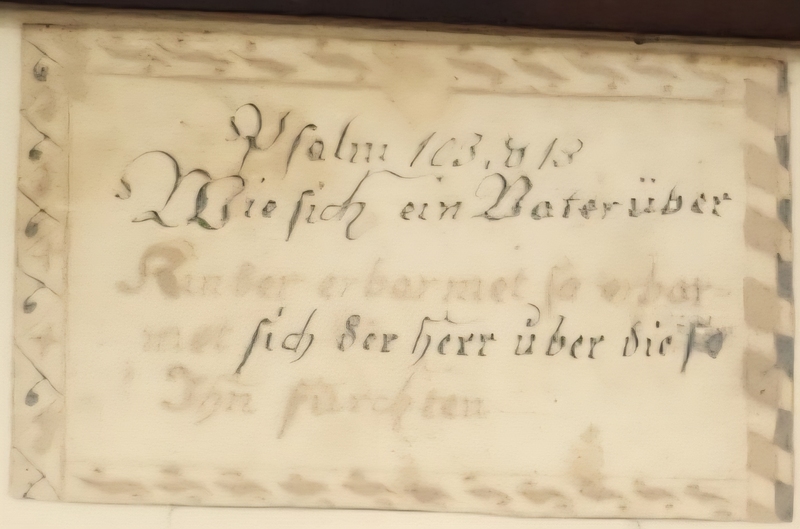 Psalm 103. v 13
Wie sich ein Vater über
Kinder erbarmet so erbar-
met sich der Herr über die so
Ihn fürchten